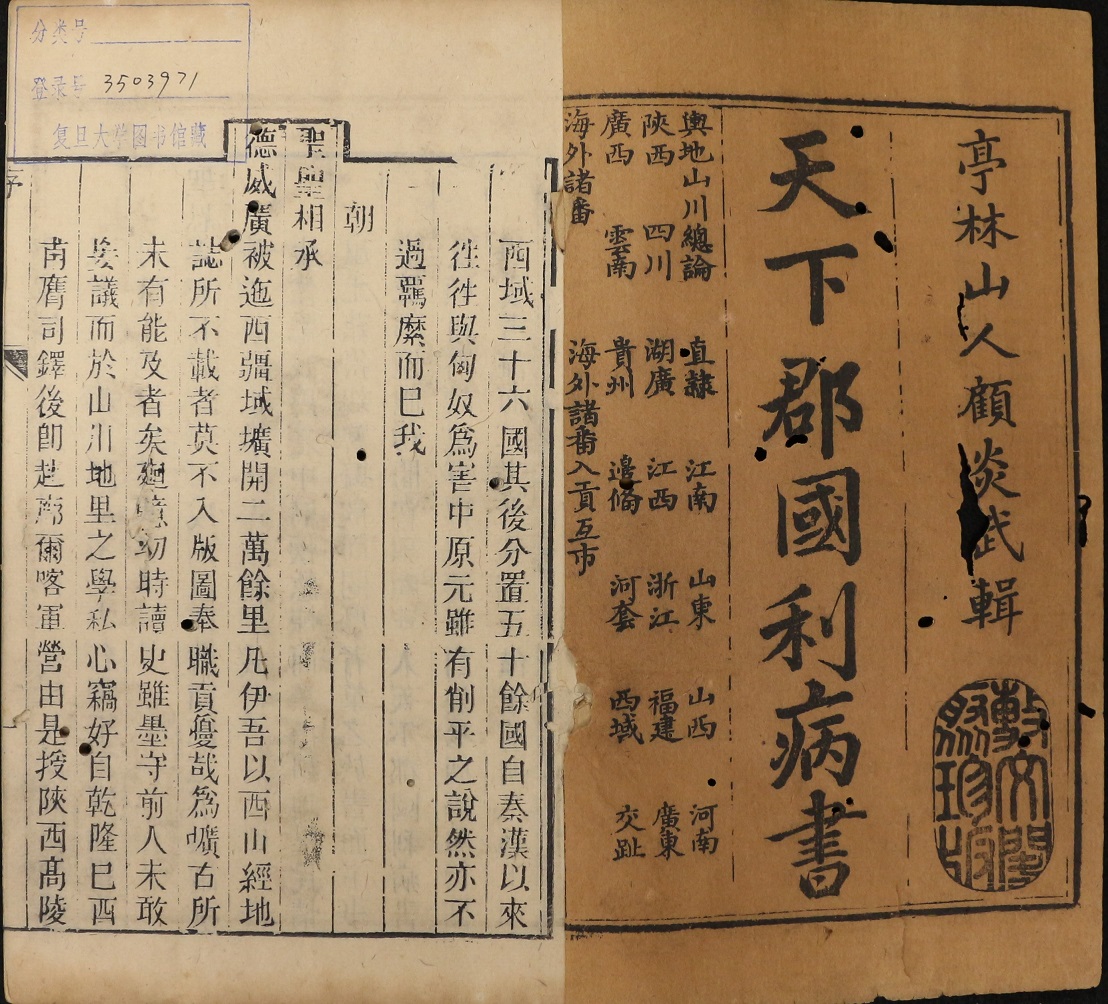 亭林山人顧炎武輯
天下郡國利病書
輿地山川總論 直隸 江南 山東 山西 河南
陝西 四川 湖廣 江西 浙江 福建 廣東
廣西 雲南 貴州 邊備 河套 西域 交趾
海外諸番 海外諸番入貢互市
敷文閣聚珍版
分类号
登录号 3503971
复旦大学图书馆藏
西域三十六國其後分置五十餘國自秦漢以來
往往與匈奴爲害中原元雖有削平之說然亦不
過羈縻而已我
朝
聖聖相承
德威廣被迤西疆域壙開二萬餘里凡伊吾以西山經地
誌所不載者莫不入版圖奉職貢優哉爲曠古所
未有能及者矣廻憶幼時讀史雖墨守前人未敢
妄議而於山川地里之學私心竊好自乾隆已酉
南膺司鐸後卽赴廓爾喀軍營由是授陝西高陵
序
一